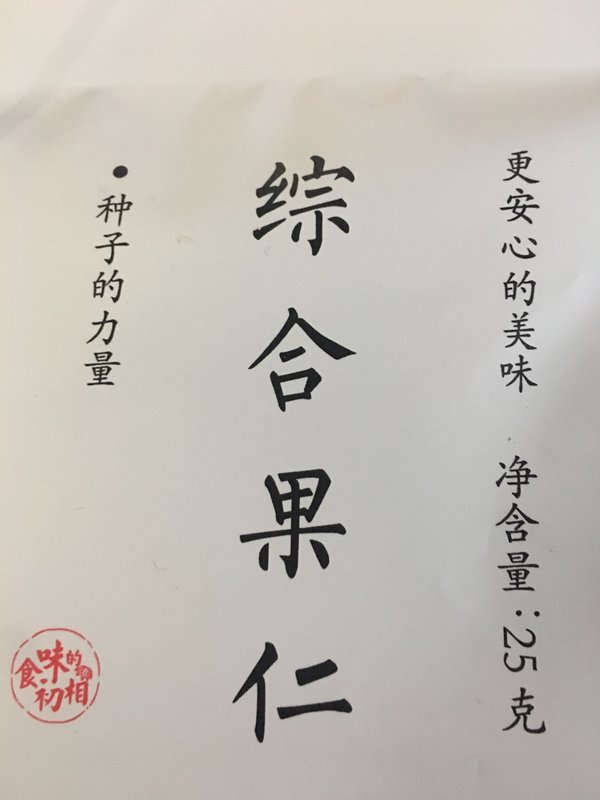 更安心的美味 净含量：25克
综合果仁
•种子的力量
食味的初相